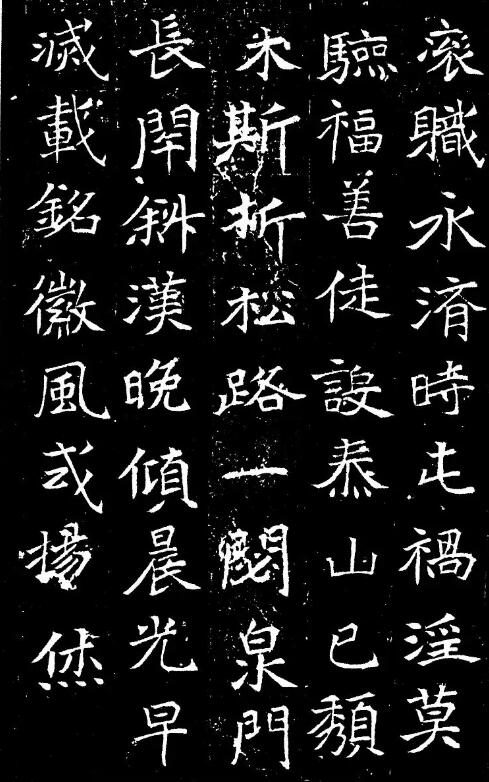 袞職永濟時屯禍淫莫
驗福善徒設泰山已頹
木斯折松路一閟泉門
長閇斜漢晚傾晨光早
滅載銘徽風式揚烋